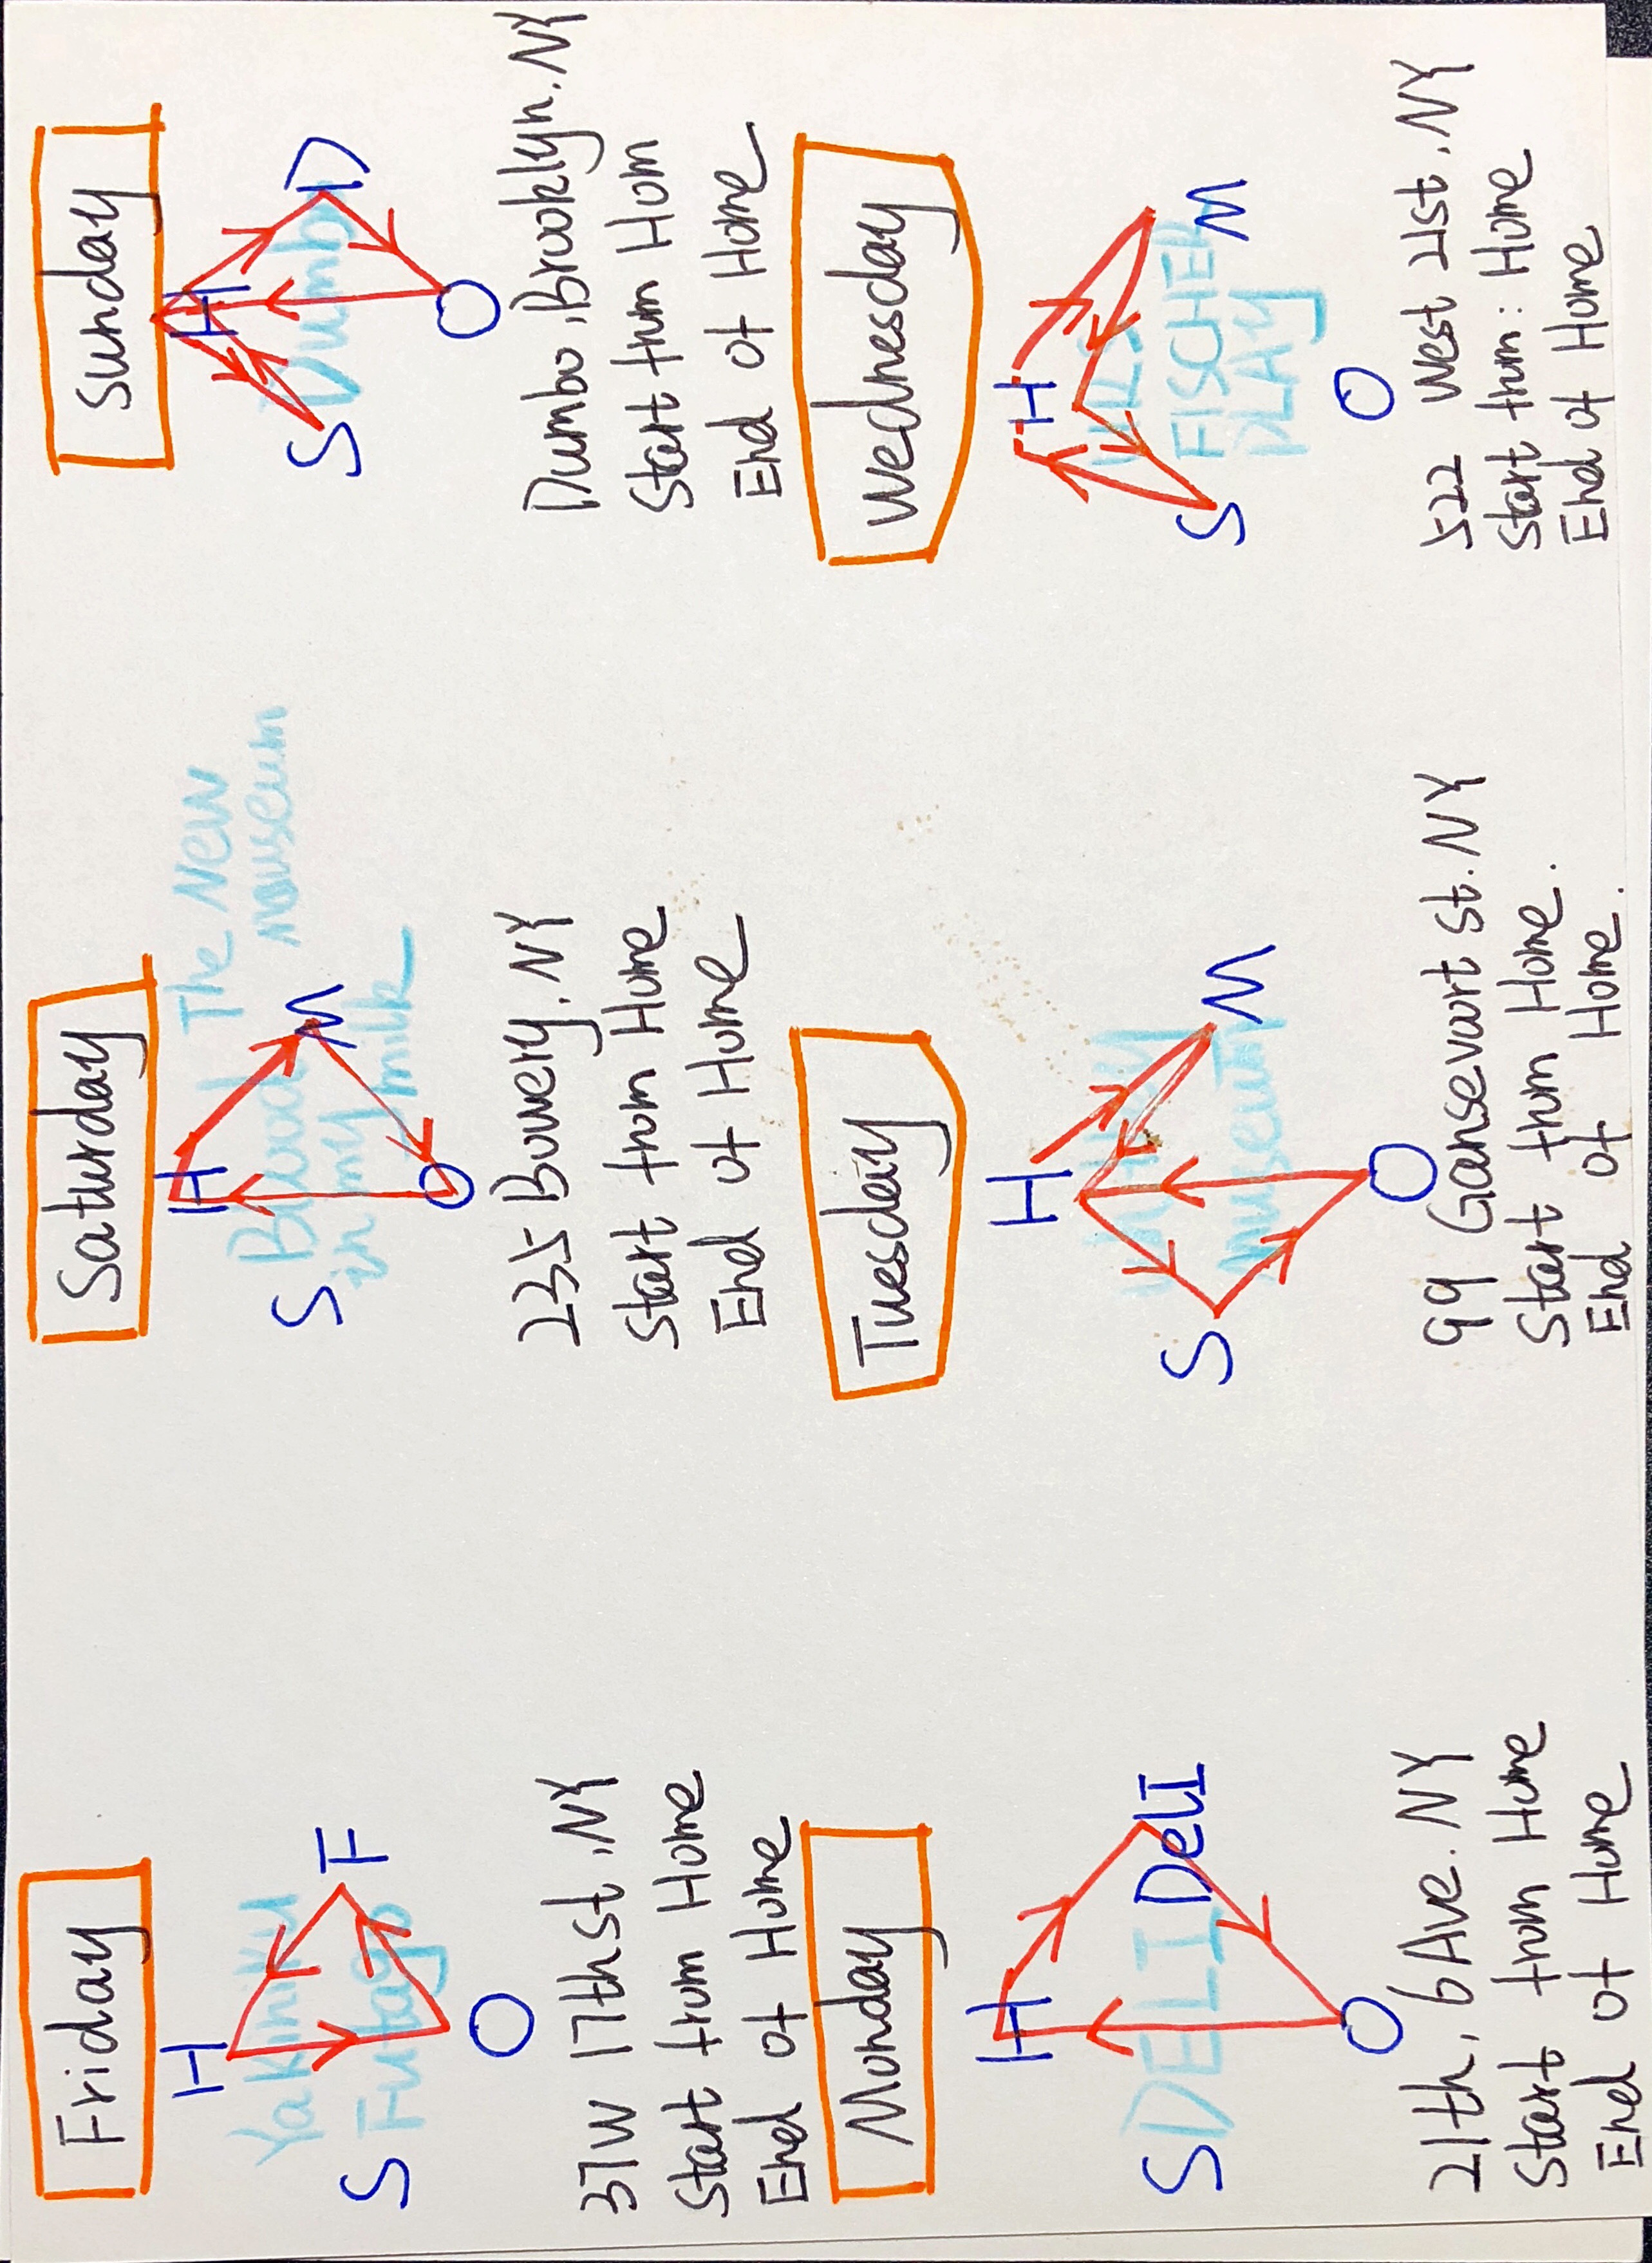 Friday
H
Yakiniku
F
S
Futago
O
37W 17th st, NY
Start from Home
End of Home
Saturday
The New
mouseum
H
M
Blood
in my milk
S
O
235 Bowery. NY
Start from Home
End of Home
Sunday
H
D
Dumbo
S
O
Dumbo, Brooklyn. NY
Start from Hom
End of Home
Monday
H
DelI
S
DELI
O
21th, 6 Ave. NY
Start from Home
End of Home
Tuesday
H
M
Whitney
museum
S
O
99 Gansevoort st. NY
Start from Home.
End of Home.
Wednesday
H
M
URS
FISCHER
PLAY
S
O
522 West 21st. NY
Start from: Home
End of Home